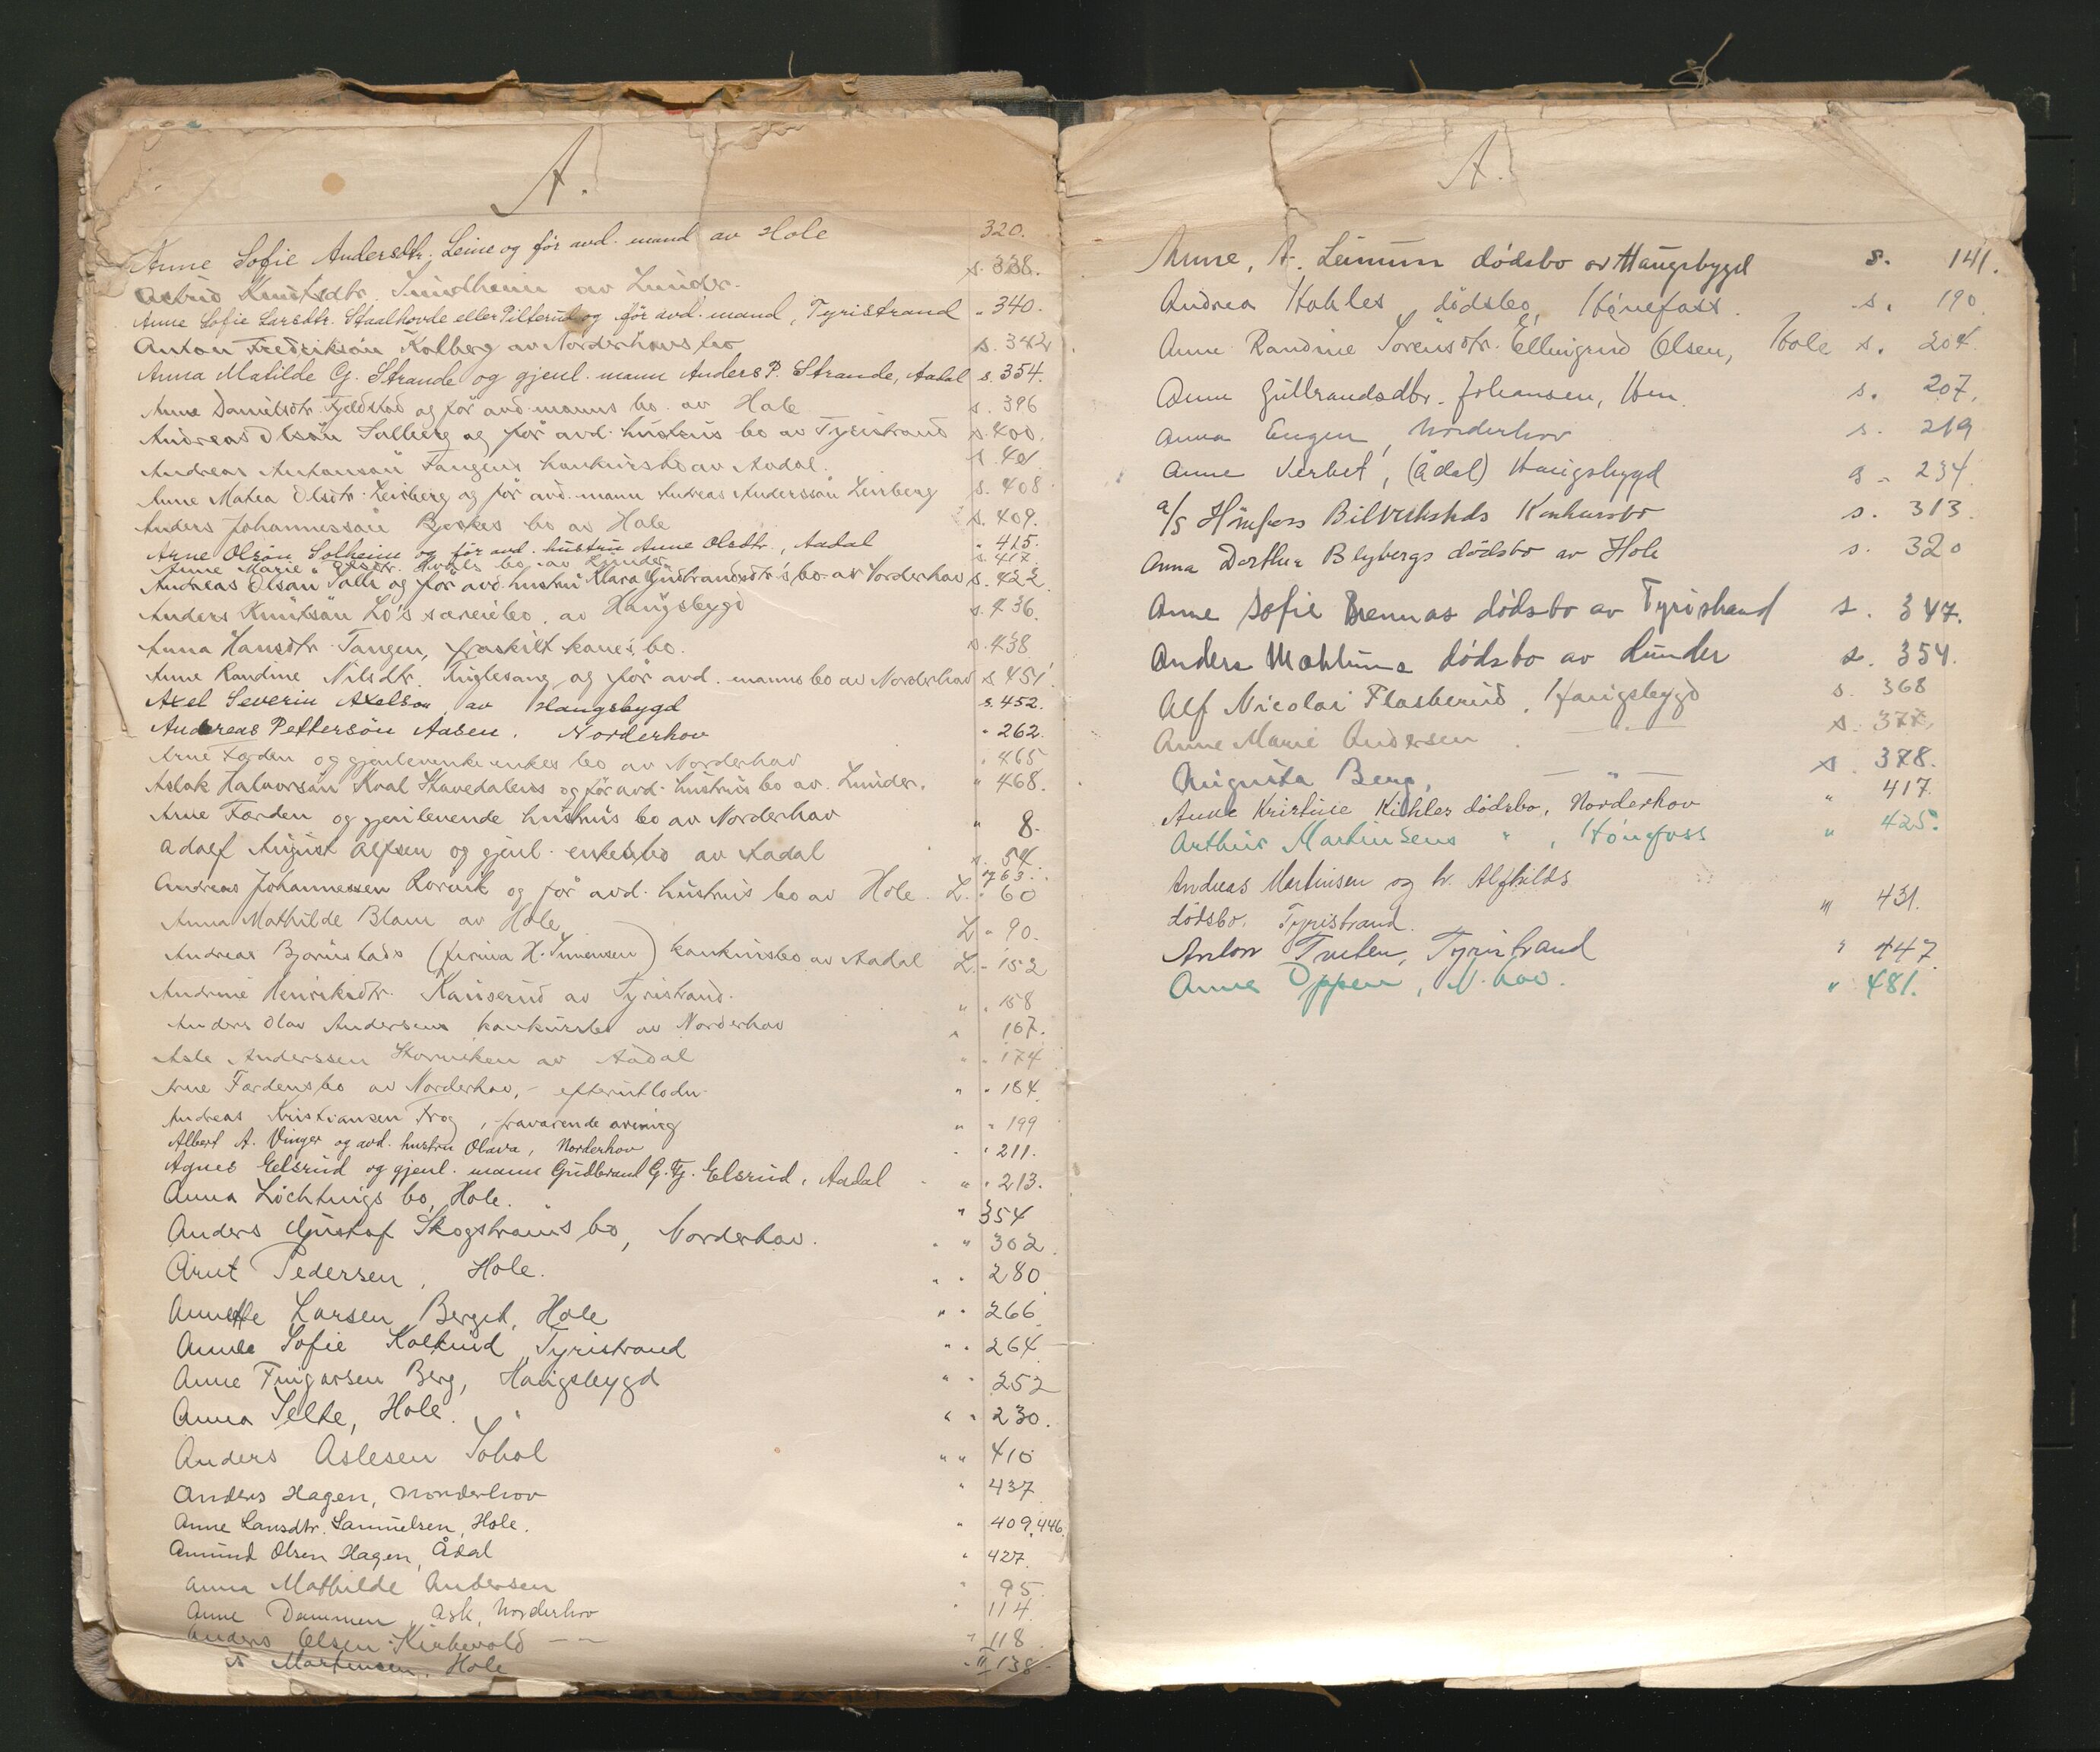 A.
Anne Sofie Andersdtr. Leine og før avd. mand av Hole 320.
Astrid Knutsdtr. Sundheim av Lunder. s. 338.
Anne Sofie Larsdtr. Staalhovde eller Pilterud og før avd. mand, Tyristrand " 340.
Anton Fredriksøn Kolberg av Norderhovs bo s. 342
Anna Matilde G. Strande og gjenl. mann Anders P. Strande, Aadal s. 354.
Anne Danielsdtr. Fjeldstad og før avd. manns bo av Hole s. 396
Andreas Olsøn Solberg og før avd. hustrus bo av Tyristrand s. 400.
Andreas Antonsøn Tangens konkursbo av Aadal. s. 401
Anne Matea Olsdtr. Leirberg og før avd. mann Andreas Anderssøn Leirberg s. 408
Anders Johannessøn bo av Hole s. 409.
Arne Olsøn Solheim og før avd. hustru Anne Olsdtr., Aadal " 415.
Anne Marie Olsdtr. bo av Lunder s. 417.
Andreas Olsøn og før avd. hustru Klara Gudbrandsdtr's bo av Norderhov s. 422
Anders Knutsøn Lo's særeiebo, av Haugsbygd s. 436.
Anna Hansdtr. Tangen, fraskilt kones bo. s. 438
Anne Randine Nilsdtr. Fuglesang og før avd. manns bo av Norderhov s. 451.
Axel Severin Axelson, av Haugsbygd s. 452.
Andreas Pettersøn Aasen, Norderhov " 262.
Arne Færden og gjenlevende enkes bo av Norderhov " 465
Aslak Halvorsøn Kval Stavedalens og før avd. hustrus bo av Lunder. " 468.
Arne Færden og gjenlevende hustrus bo av Norderhov " 8.
Adolf August Alfsen og gjenl. enkes bo av Aadal s. 54.
Andreas Johannessen Rørvik og før avd. hustrus bo av Hole. L. " 60
Anna Mathilde Blom av Hole L " 90.
Andreas Bjørnstads (firma H. Simensen) konkursbo av Aadal L. " 152
Andrine Henriksdtr. av Tyristrand. " " 158
Anders Olav Andersens konkursbo av Norderhov " 167.
Asle Anderssen Storveken av Aadal " " 174
Arne Færdens bo av Norderhov, - efterutlodn. " " 184.
Andreas Kristiansen Frog, fraværende arving " " 199
Albert A. Vinger og avd. hustru Olava, Norderhov " " 211.
Agnes Elsrud og gjenl. mann Gudbrand G. Fj. Elsrud, Aadal " " 213.
Anna Løchtings bo, Hole. " 354
Anders Gustaf Skogstrøms bo, Norderhov. " " 302.
Arnt Pedersen, Hole. " " 280
Annette Larsen Berget, Hole " " 266
Anne Sofie Kolkind, Tyristrand " " 264
Anne Fingarsen Berg, Haugsbygd " " 252
Anna Selte, Hole. " " 230.
Anders Aslesen Sohol " " 410
Anders Hagen, Norderhov " 437
Anne Larsdtr. Samuelsen, Hole. " 409, 446.
Amund Olsen Hagen, Ådal " 427.
Anna Mathilde Andersen " 95.
Anne Dammen, Ask, Norderhov " 114.
Anders Olsen Kirkevold — — " 118.
" Martinsen, Hole " II 138
A.
Anne, A. Leinum dødsbo av Haugsbygd s. 141.
Andrea Hohles dødsbo, Hønefoss. s. 190
Anne Randine Sørensdtr. Ellingrud Olsen, Hole s. 204.
Anne Gulbrandsdtr. Johansen, Hen. s. 207.
Anna Engen, Norderhov s. 219
Anne Verket, (Ådal) Haugsbygd s. 234.
A/S Hønefoss Bilverksteds Konkursbo s. 313.
Anna Dorthea Blybergs dødsbo av Hole s. 320
Anne Sofie Brennas dødsbo av Tyristrand s. 347.
Anders Mohlums dødsbo av Lunder s. 354.
Alf Nicolai Flaskerud, Haugsbygd s. 368
Anne Marie Andersen — " — s. 377.
Augusta Berg, — " — s. 378.
Anne Kristine Kihles dødsbo, Norderhov " 417.
Arthur Martinsens " , Hønefoss " 425.
Andreas Martinsen og h. Alfhilds
dødsbo. Tyristrand. " 431.
Anton Tveten, Tyristrand " 447.
Anne Oppen, N.hov. " 481.